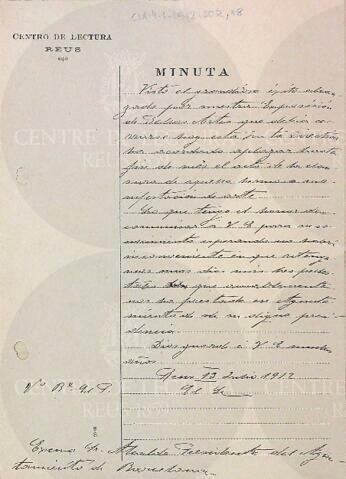 CENTRO DE LECTURA
REUS
MINUTA
Visto el grandioso éxito alcan-
zado por nuestra Exposición
de Bellas Artes que debía
hoy esta Junta Directiva
ha acordado aplazar hasta
fin de mes el acto de la clau-
sura de aquella hermosa ma-
nifestación de arte
Lo que tengo el honor de
comunicar a V. E. para su co-
nocimiento esperando no habrá
inconveniente en que
unos días más los
que amablemente
nos ha prestado en Ayunta-
miento de su digna presi-
dencia.
Dios guarde a V. E. muchos
años.
Reus 13 Julio 1912
El
Vº Bº El P.
Excmo Sr. Alcalde Presidente del Ayun-
tamiento de Barcelona